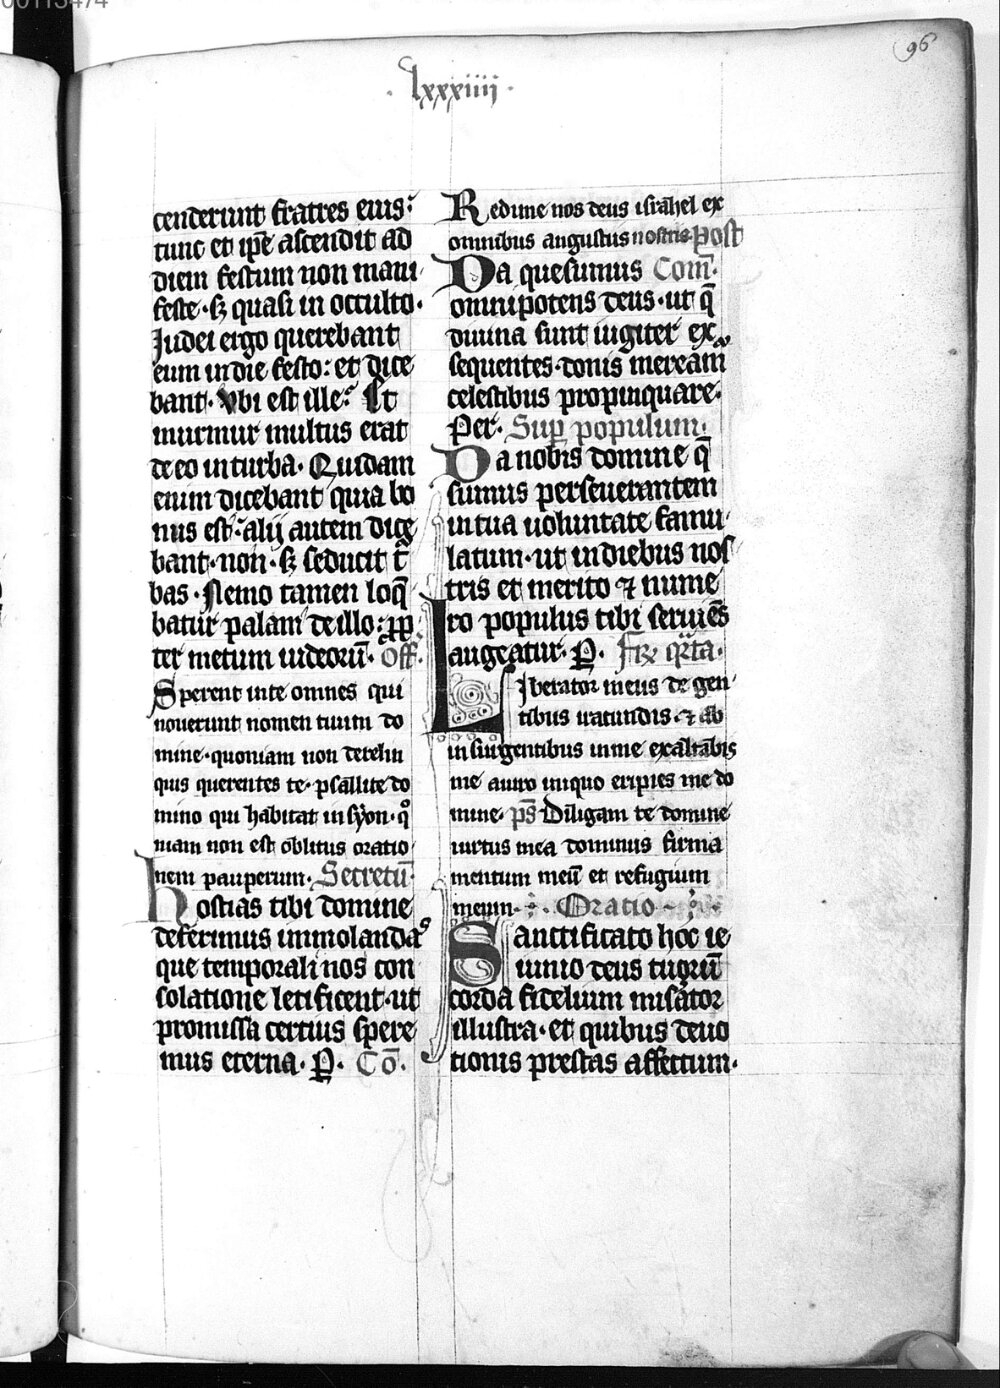 00113474
96
·lxxxiiii·
cenderunt fratres eius:
tunc et ip̄e ascendit ad
diem festum non mani
feste· sꝫ quasi in occulto·
Judei ergo querebant
eum in die festo: et dice
bant· Vbi est ille? Et
murmur multus erat
de eo in turba· Quidam
enim dicebant quia bo
nus est· alij autem dice
bant· non· sꝫ seducit t̄
bas· Nemo tamen loq̄
batur palam de illo: ꝓp
ter metum iudeorū· Off·
Sperent in te omnes qui
nouerunt nomen tuum do
mine· quoniam non derelin
quis querentes te· psallite do
mino qui habitat in syon· qͦ
niam non est oblitus oratio
nem pauperum· Secretū·
Hostias tibi domine
deferimus immolandas
que temporali nos con
solatione letificent· ut
promissa certius spere
mus eterna· P̱· Cō·
Redime nos deus israhel ex
omnibus angustiis nostris Post
Da quesumus Com̄·
omnipotens deus· ut q̄
diuina sunt iugiter ex
sequentes· donis mereamur
celestibus propinquare·
Per· Suꝑ populum·
Da nobis domine q̄
sumus perseuerantem
in tua voluntate famu
latum· ut in diebus nos
tris et merito ⁊ nume
ro populus tibi seruiēs
augeatur· P̱· Fr̄ q̄rta·
Liberator meus de gen
tibus iracundis· ⁊ ab
insurgentibus in me exaltabis
me a uiro iniquo eripies me do
mine· p̄s Diligam te domine
uirtus mea dominus firma
mentum meū et refugium
meum· Oratio
Sanctificato hoc ie
iunio deus tuorū
corda fidelium miserator
illustra· et quibus deuo
tionis prestas affectum·